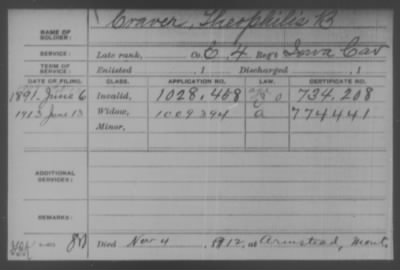 Craver, Theophilis B
NAME OF SOLDIER:
SERVICE: Late rank, Co. E, 4 Reg't Iowa Cav
TERM OF SERVICE: Enlisted , 1 Discharged , 1
DATE OF FILING. CLASS. APPLICATION NO. LAW. CERTIFICATE NO.
1891 June 6 Invalid, 1028.468 734.208
1913 June 13 Widow, 1009394 a 774441
Minor,
ADDITIONAL SERVICES:
REMARKS:
Died Nov 4, 1912, at Armstead, Mont.